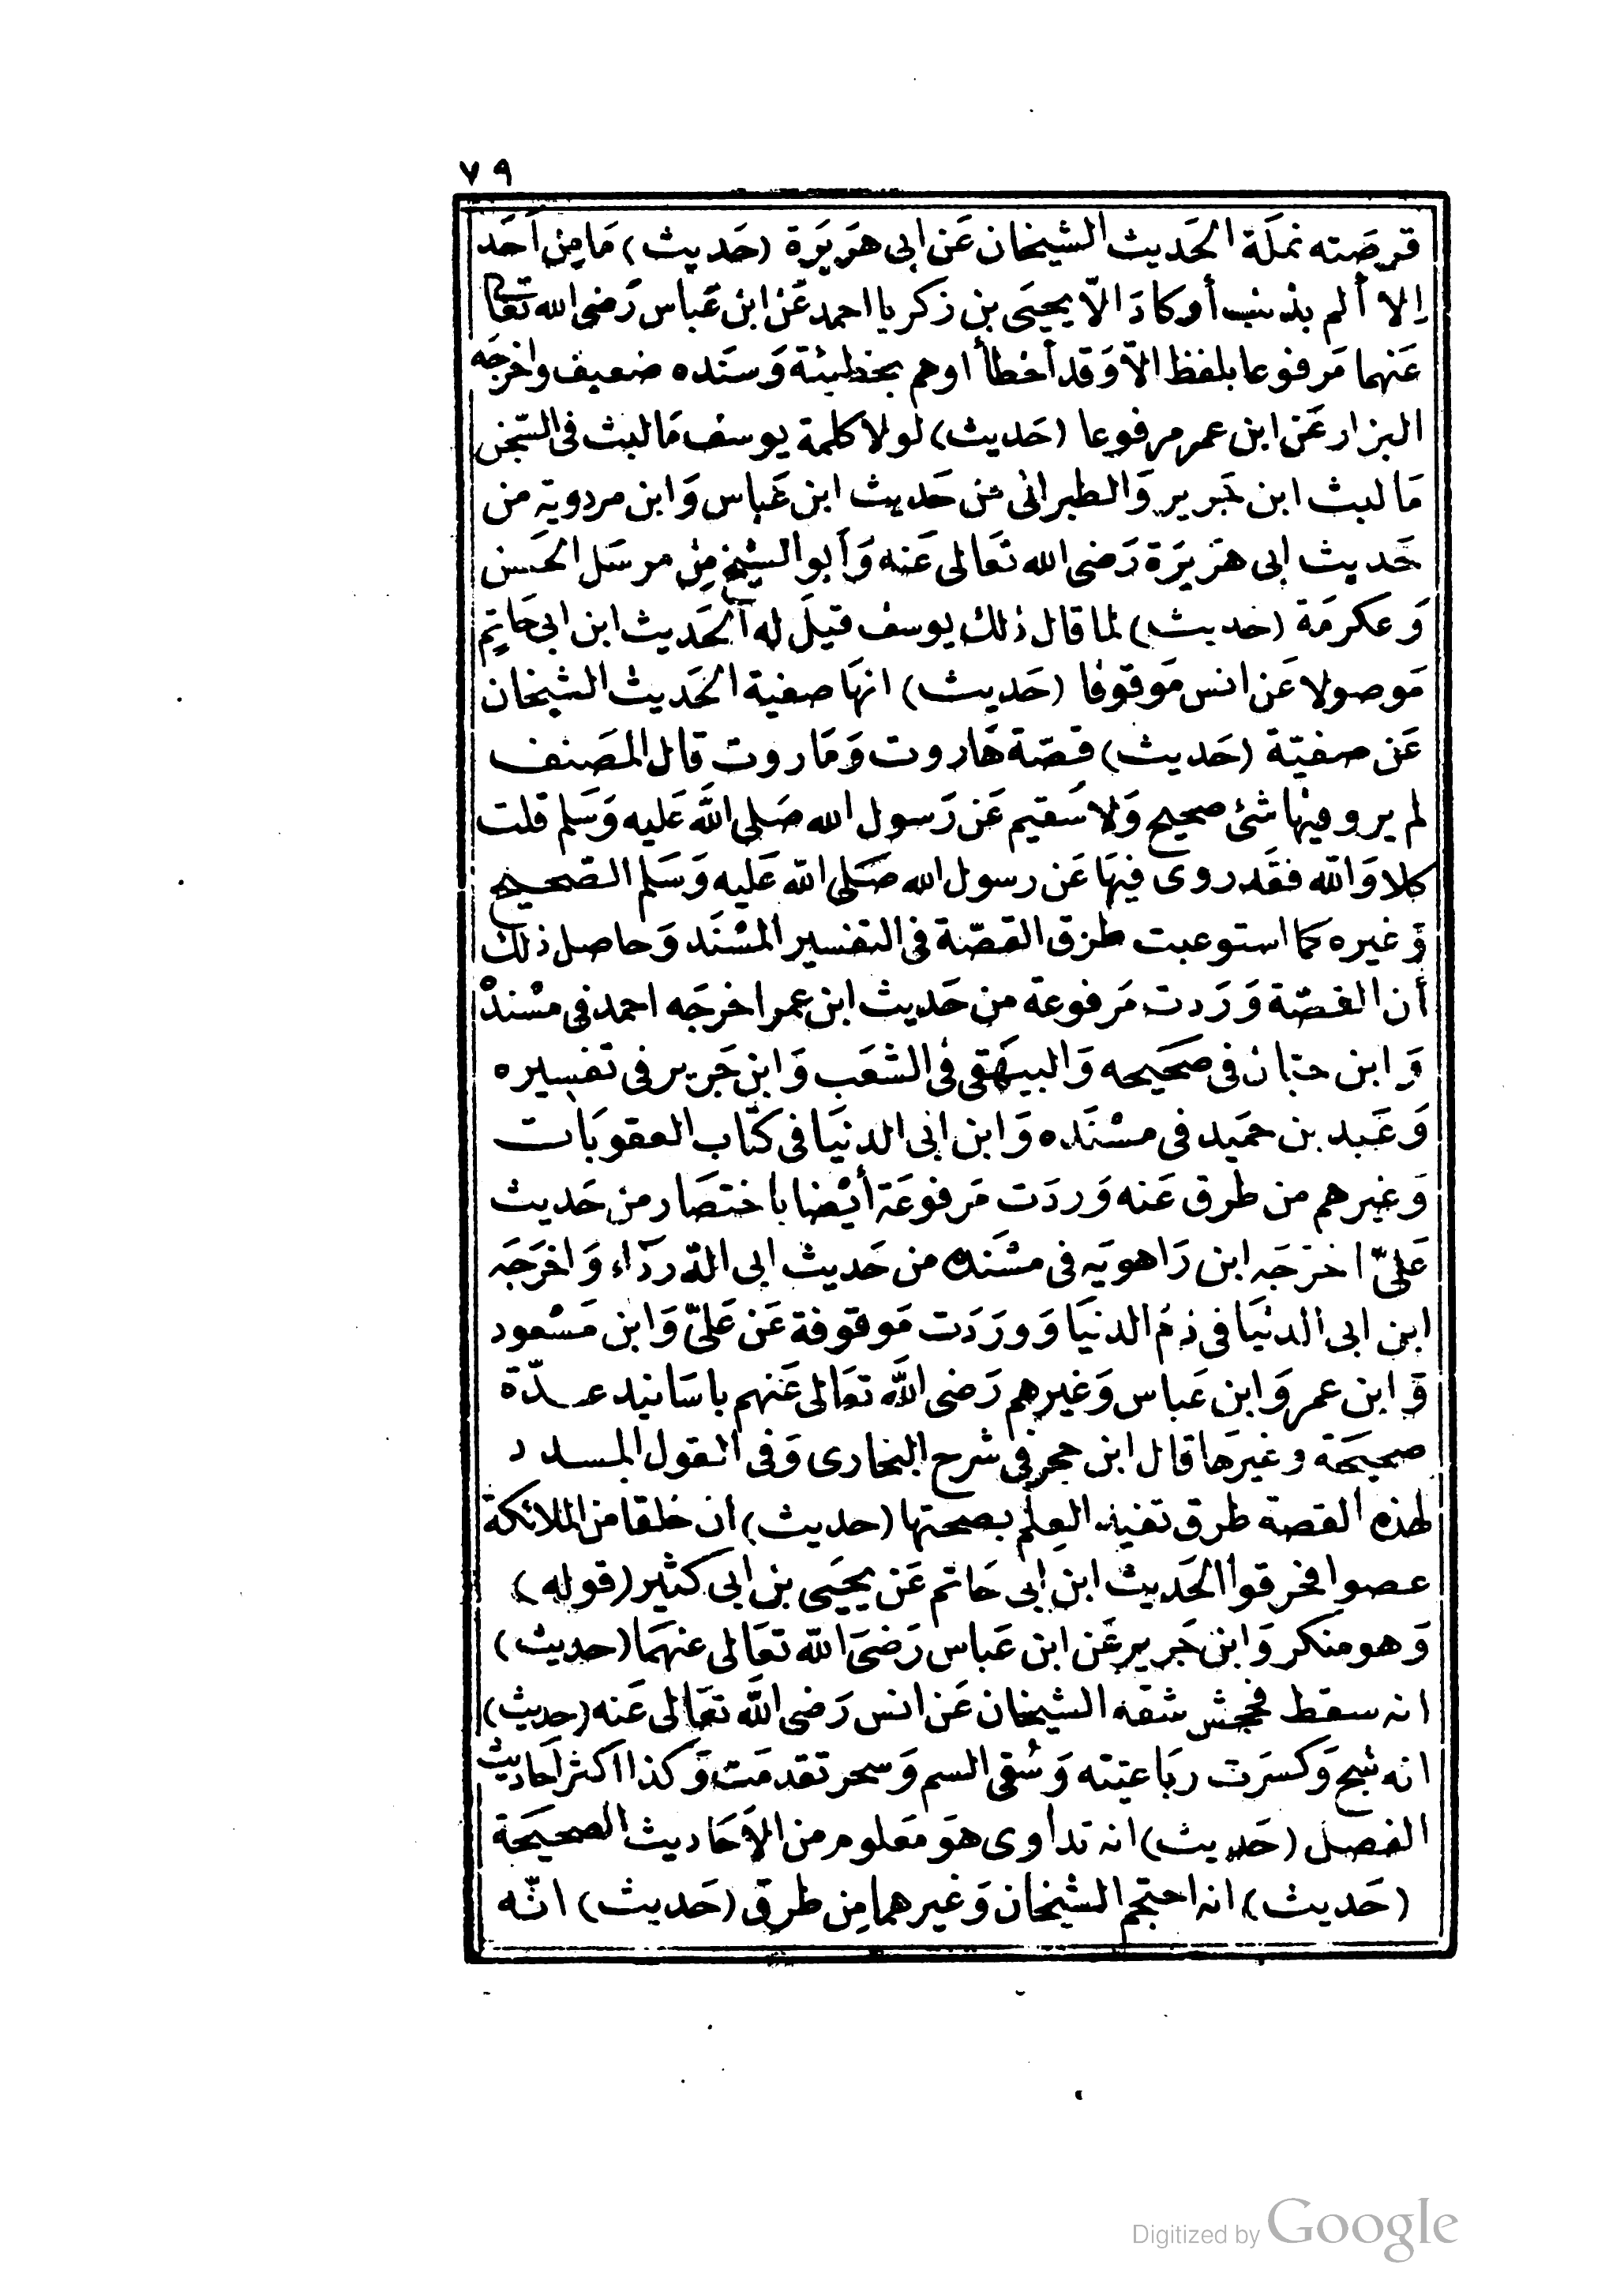 ٧٩
قرصَته نملَة الحَديث الشيخان عَن ابى هرَيرَة (حَديث) مَا مِن أحَد
إلا ألم بذنب أو كادَ الاّ يحيَى بن زكريا احمد عَن ابن عَباس رَضى الله تعَالى
عَنهما مَرفوعا بلفظ الاّ وَقد أخطأ اوهم بخطيئة وَسنَده ضعيف واخرجَه
البزار عَن ابن عمر مرفوعا (حَديث) لولا كلمة يوسف مَا لبث فى السّجن
مَا لبث ابن جَرير وَالطبرانى من حَديث ابن عَباس وَابن مردوية من
حَديث ابى هرَيرَة رَضى الله تعَالى عَنه وَأبو الشيخ مِن مرسَل الحَسن
وَعكرمَة (حَديث) لما قال ذلك يوسف قيلَ له ألحَديث ابن ابى حَاتِم
مَوصولا عَن انس مَوقوفا (حَديث) انهَا صفية الحَديث الشيخان
عَن صفيّة (حَديث) قصّة هَاروت وَمَاروت قال المصَنف
لم يرو فيها شئ صحيح وَلا سَقيم عَن رَسول الله صَلى اللَّه عَليه وَسَلم قلت
كلا وَاللّه فقَد روى فيهَا عَن رسول الله صَلى اللّه عَليه وَسَلم الصّحيح
وَغيره كما استوعبت طرق القصّة فى التفسير المسْنَد وَحاصل ذلك
أن القصّة وَرَدت مَرفوعة من حَديث ابن عمر اخرجَه احمد فى مسْنده
وَابن حبّان فى صَحيحه وَالبيهَقى فى الشعَب وَابن جَرير فى تفسيره
وَعَبد بن حمَيد فى مسْنَده وَابن ابى الدنيَا فى كتاب العقوبَات
وَغيرهم من طرق عَنه وَردَت مَرفوعَة أيْضا باختصَار من حَديث
عَلىّ اخرَجَه ابن رَاهويَه فى مسْنَده من حَديث ابى الدّردَاء وَاخرَجَه
ابن ابى الدنيَا فى ذم الدنيَا وَورَدَت مَوقوفة عَن عَلىّ وَابن مَسْعود
وَابن عمر وَابن عَباس وَغيرهم رَضى اللَّه تعَالى عَنهم باسَانيد عدّة
صحيحَة وغيرَها قال ابن حجر فى شرح البخارى وَفى القول المسدد
لهذه القصة طرق تفيد العِلم بصحتها (حديث) ان خلقا من الملائكة
عصوا فحرقوا الحَديث ابن ابى حَاتم عَن يحيَى بن ابى كثير (قوله)
وَهو منكر وَابن جَرير عَن ابن عَباس رَضىَ اللّه تعَالى عنهمَا (حديث)
انه سقط فجحش شقه الشيخان عَن انس رَضى اللَّه تعَالى عَنه (حديث)
انه شج وَكسرَت ربَاعيته وَسُقى السم وَسحر تقدمَت وَكذا اكثر احَاديث
الفصل (حَديث) انه تداوى هوَ مَعلوم من الاَحَاديث الصحيحَة
(حَديث) انه احتجم الشيخان وَغيرهما مِن طرق (حَديث) انّه
Digitized by Google